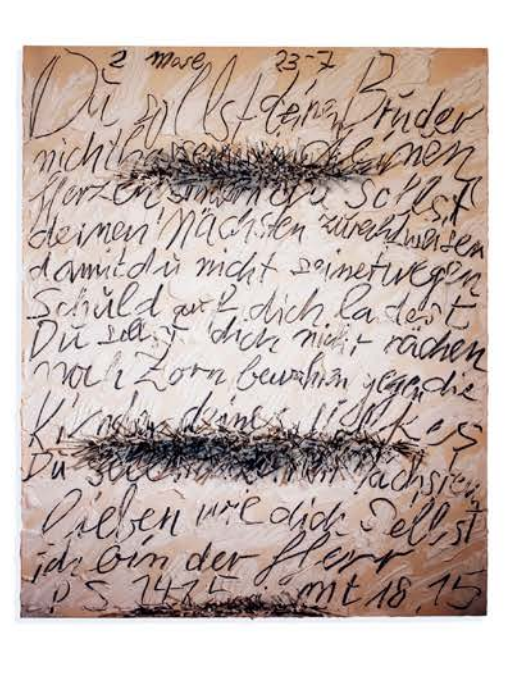 2 Mose 23-7
Du sollst deinen Bruder
nicht deinen
Herzen sondern du sollst
deinen Nächsten zurechtweisen
damit du nicht seinetwegen
Schuld auf dich ladest
Du sollst dich nicht rächen
noch Zorn bewahren gegen die
Kinder deines
Du Nächsten
lieben wie dich Selbst
ich bin der Herr
PS mt 18,15